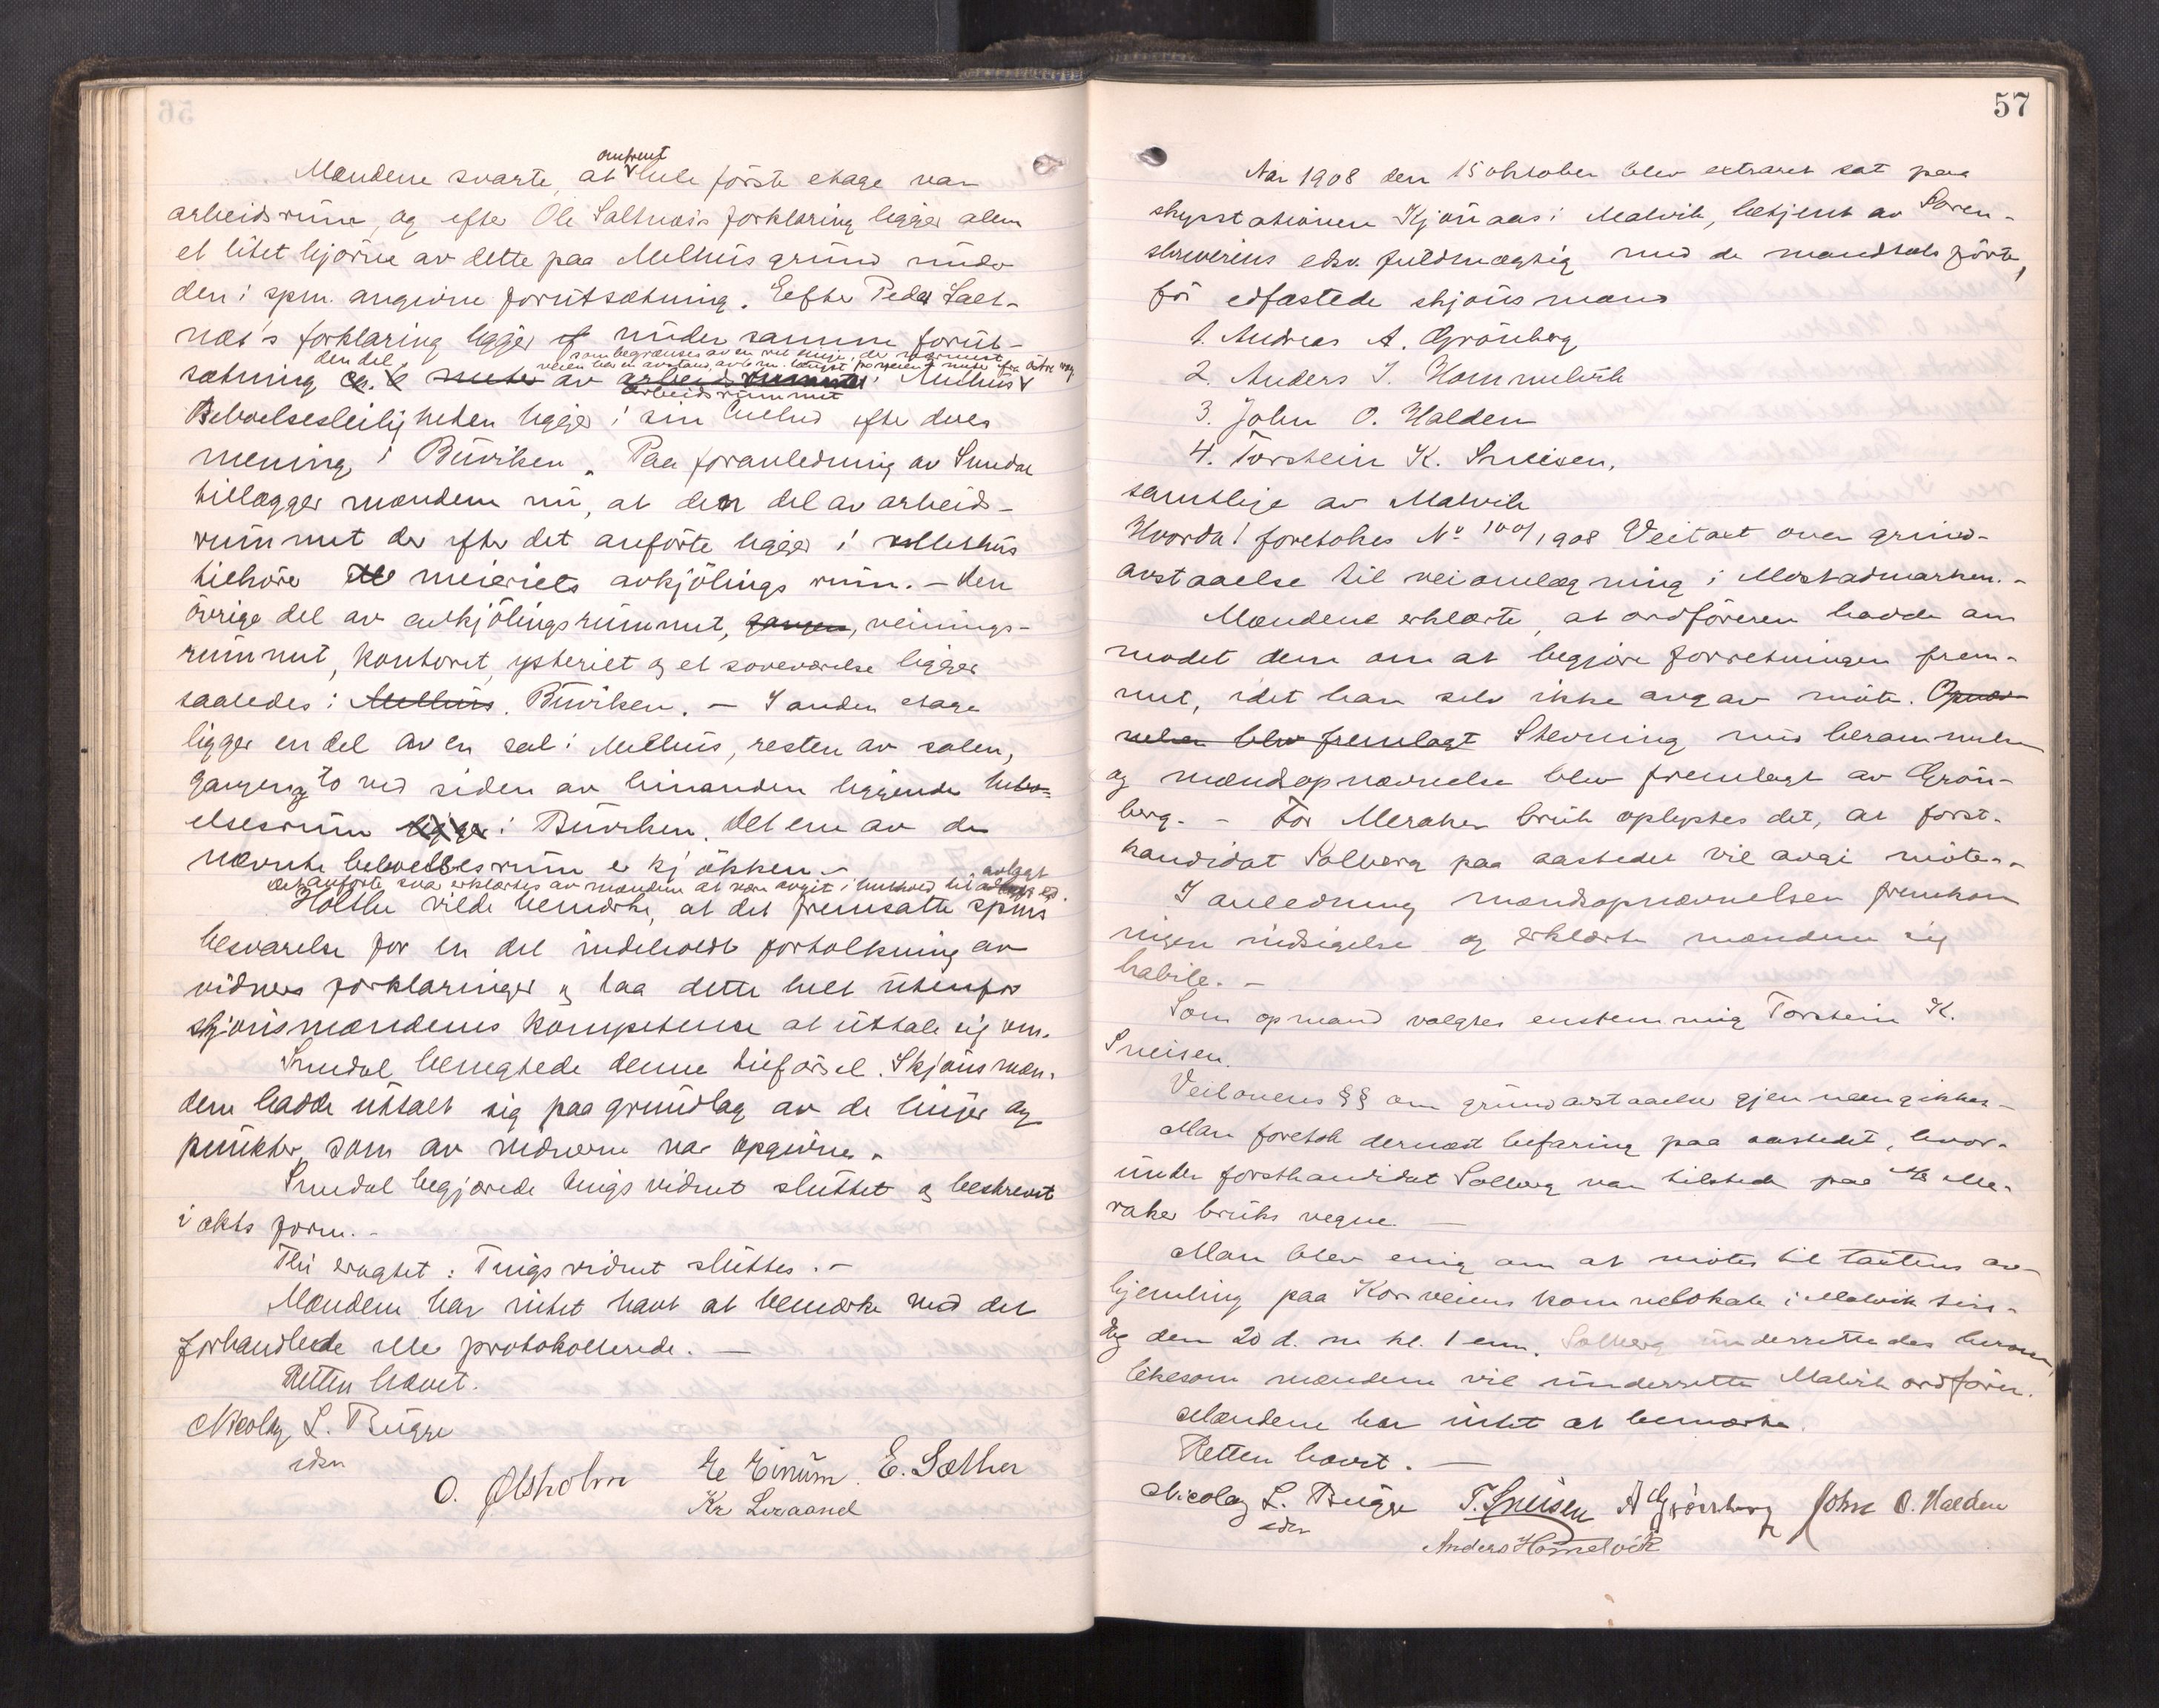 Mændene svarte, at omtrent hele förste etage var
arbeidsrum, og efter Ole Saltnæs forklaring ligger alene
et litet hjörne av dette paa Melhus grund under
den i spm. angivne forutsætning. Efter Peder Salt-
næs's forklaring ligger under samme forut-
sætning den del av arbeidsrummet i Melhus
som begrænses av en ret linje, der nærmest
veien har en avstand av 6 m. længst fra veien 7 meter fra östre væg
Beboelsesleiligheten ligger i sin helhed efter deres
mening i Buviken. Paa foranledning av Sundal
tillægger mændene nu, at den del av arbeids-
rummet der efter det anförte ligger i Melhus
tilhöre meieriets avkjölings rum. – Den
övrige del av avkjölingsrummet, gangen, veinings-
rummet, kontoret, ysteriet og et soveværelse ligger
saaledes i Melhus. Buviken. – I anden etage
ligger en del av en sal i Melhus, resten av salen,
gangen og to ved siden av hinanden liggende bebo-
elsesrum ligger i Buviken. Det ene av de
nævnte beboelsesrum er kjökken. –
Det anförte svar erklærtes av mændene at være avgit i henhold til avlagt ed.
Holthe vilde bemærke, at det fremsatte spms
besvarelse for en del indeholdt fortolkning av
vidners forklaringer og laa dette helt utenfor
skjönsmændenes kompetense at uttale sig om.
Sundal benegtede denne tilförsel. Skjönsmæn-
dene hadde uttalt sig paa grundlag av de linjer og
punkter, som av vidnerne var opgivne.
Sundal begjærede tingsvidnet sluttet og beskrevet
i akts form. –
Thi eragtet: Tingsvidnet sluttes. –
Mændene har intet havt at bemærke ved det
forhandlede eller protokollerede. –
Retten hævet.
Nicolay L. Bugge
edsv
O. Ølsholm E Einum. E. Sæther
Kr Leraand
57
Aar 1908 den 15 oktober blev extraret sat paa
skysstationen Kjönaas i Malvik, betjent av Soren-
skriverens edsv. fuldmægtig med de mandtals förte,
för edfæstede skjönsmænd
1. Andreas A. Grönberg
2. Anders J. Hommelvik
3. John O. Halden
4. Torstein K. Sneisen,
samtlige av Malvik
Hvorda! foretokes No 100/1908 Veitakt over grund-
avstaaelse til veiomlægning i Mostadmarken. –
Mændene erklærte, at ordföreren hadde an-
modet dem om at begjære forretningen frem-
met, idet han selv ikke avgav möte. Opnæv-
nelsen blev fremlagt Stevning med berammelse
og mændsopnævnelse blev fremlagt av Grön-
berg. – For Meraker bruk oplystes det, at forst-
kandidat Solberg paa aastedet vil avgi möte. –
I anledning mændsopnævnelsen fremkom
ingen indsigelse og erklærte mændene sig
habile. –
Som opmand valgtes enstemmig Torstein K.
Sneisen.
Veilovens §§ om grundavstaaelse gjennemgikkes –
Man foretok dernæst befaring paa aastedet, hvor-
under forstkandidat Solberg var tilstede paa A/S Me-
raker bruks vegne. –
Man blev enig om at mötes til taktens av-
hjemling paa Korsveiens kommelokale i Malvik tirs-
dag den 20 d. m kl. 1 em. Solberg underrettedes herom,
likesom mændene vil underrette Malvik ordförer.
Mændene har intet at bemærke.
Retten hævet. –
Nicolay L. Bugge T. Sneisen A Grönberg John O. Halden
edsv
Anders Homelvik